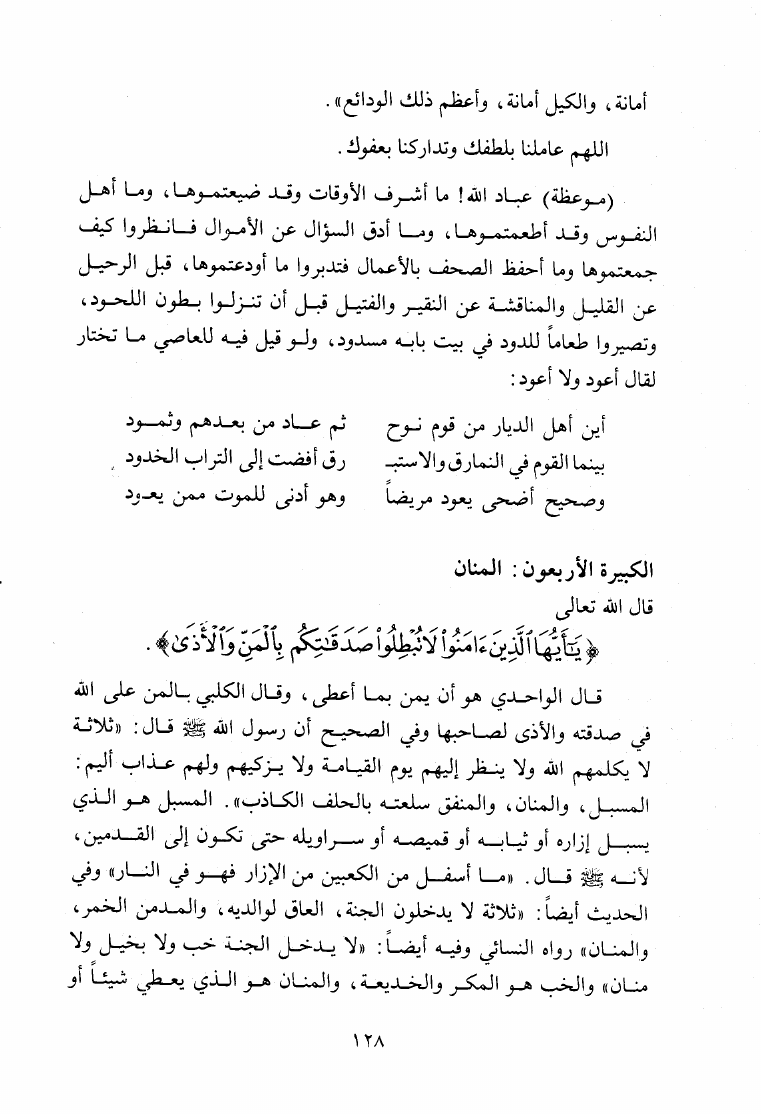 أمانة، والكيل أمانة، وأعظم ذلك الودائع».
اللهم عاملنا بلطفك وتداركنا بعفوك.
(موعظة) عباد الله! ما أشرف الأوقات وقد ضيعتموها، وما أهل
النفوس وقد أطعمتموها، وما أدق السؤال عن الأموال فانظروا كيف
جمعتموها وما أحفظ الصحف بالأعمال فتدبروا ما أودعتموها، قبل الرحيل
عن القليل والمناقشة عن النقير والفتيل قبل أن تنزلوا بطون اللحود،
وتصيروا طعاماً للدود في بيت بابه مسدود، ولو قيل فيه للعاصي ما تختار
لقال أعود ولا أعود:
أين أهل الديار من قوم نوح ثم عاد من بعدهم وثمود
بينما القوم في النمارق والاستبـ رق أفضت إلى التراب الخدود
وصحيح أضحى يعود مريضاً وهو أدنى للموت ممن يعود
الكبيرة الأربعون: المنان
قال الله تعالى
﴿يَٰٓأَيُّهَا ٱلَّذِينَ ءَامَنُوا۟ لَا تُبْطِلُوا۟ صَدَقَٰتِكُم بِٱلْمَنِّ وَٱلْأَذَىٰ﴾.
قال الواحدي هو أن يمن بما أعطى، وقال الكلبي بالمن على الله
في صدقته والأذى لصاحبها وفي الصحيح أن رسول الله ﷺ قال: «ثلاثة
لا يكلمهم الله ولا ينظر إليهم يوم القيامة ولا يزكيهم ولهم عذاب أليم:
المسبل، والمنان، والمنفق سلعته بالحلف الكاذب». المسبل هو الذي
يسبل إزاره أو ثيابه أو قميصه أو سراويله حتى تكون إلى القدمين،
لأنه ﷺ قال. «ما أسفل من الكعبين من الإزار فهو في النار» وفي
الحديث أيضاً: «ثلاثة لا يدخلون الجنة، العاق لوالديه، والمدمن الخمر،
والمنان» رواه النسائي وفيه أيضاً: «لا يدخل الجنة خب ولا بخيل ولا
منان» والخب هو المكر والخديعة، والمنان هو الذي يعطي شيئاً أو
١٢٨